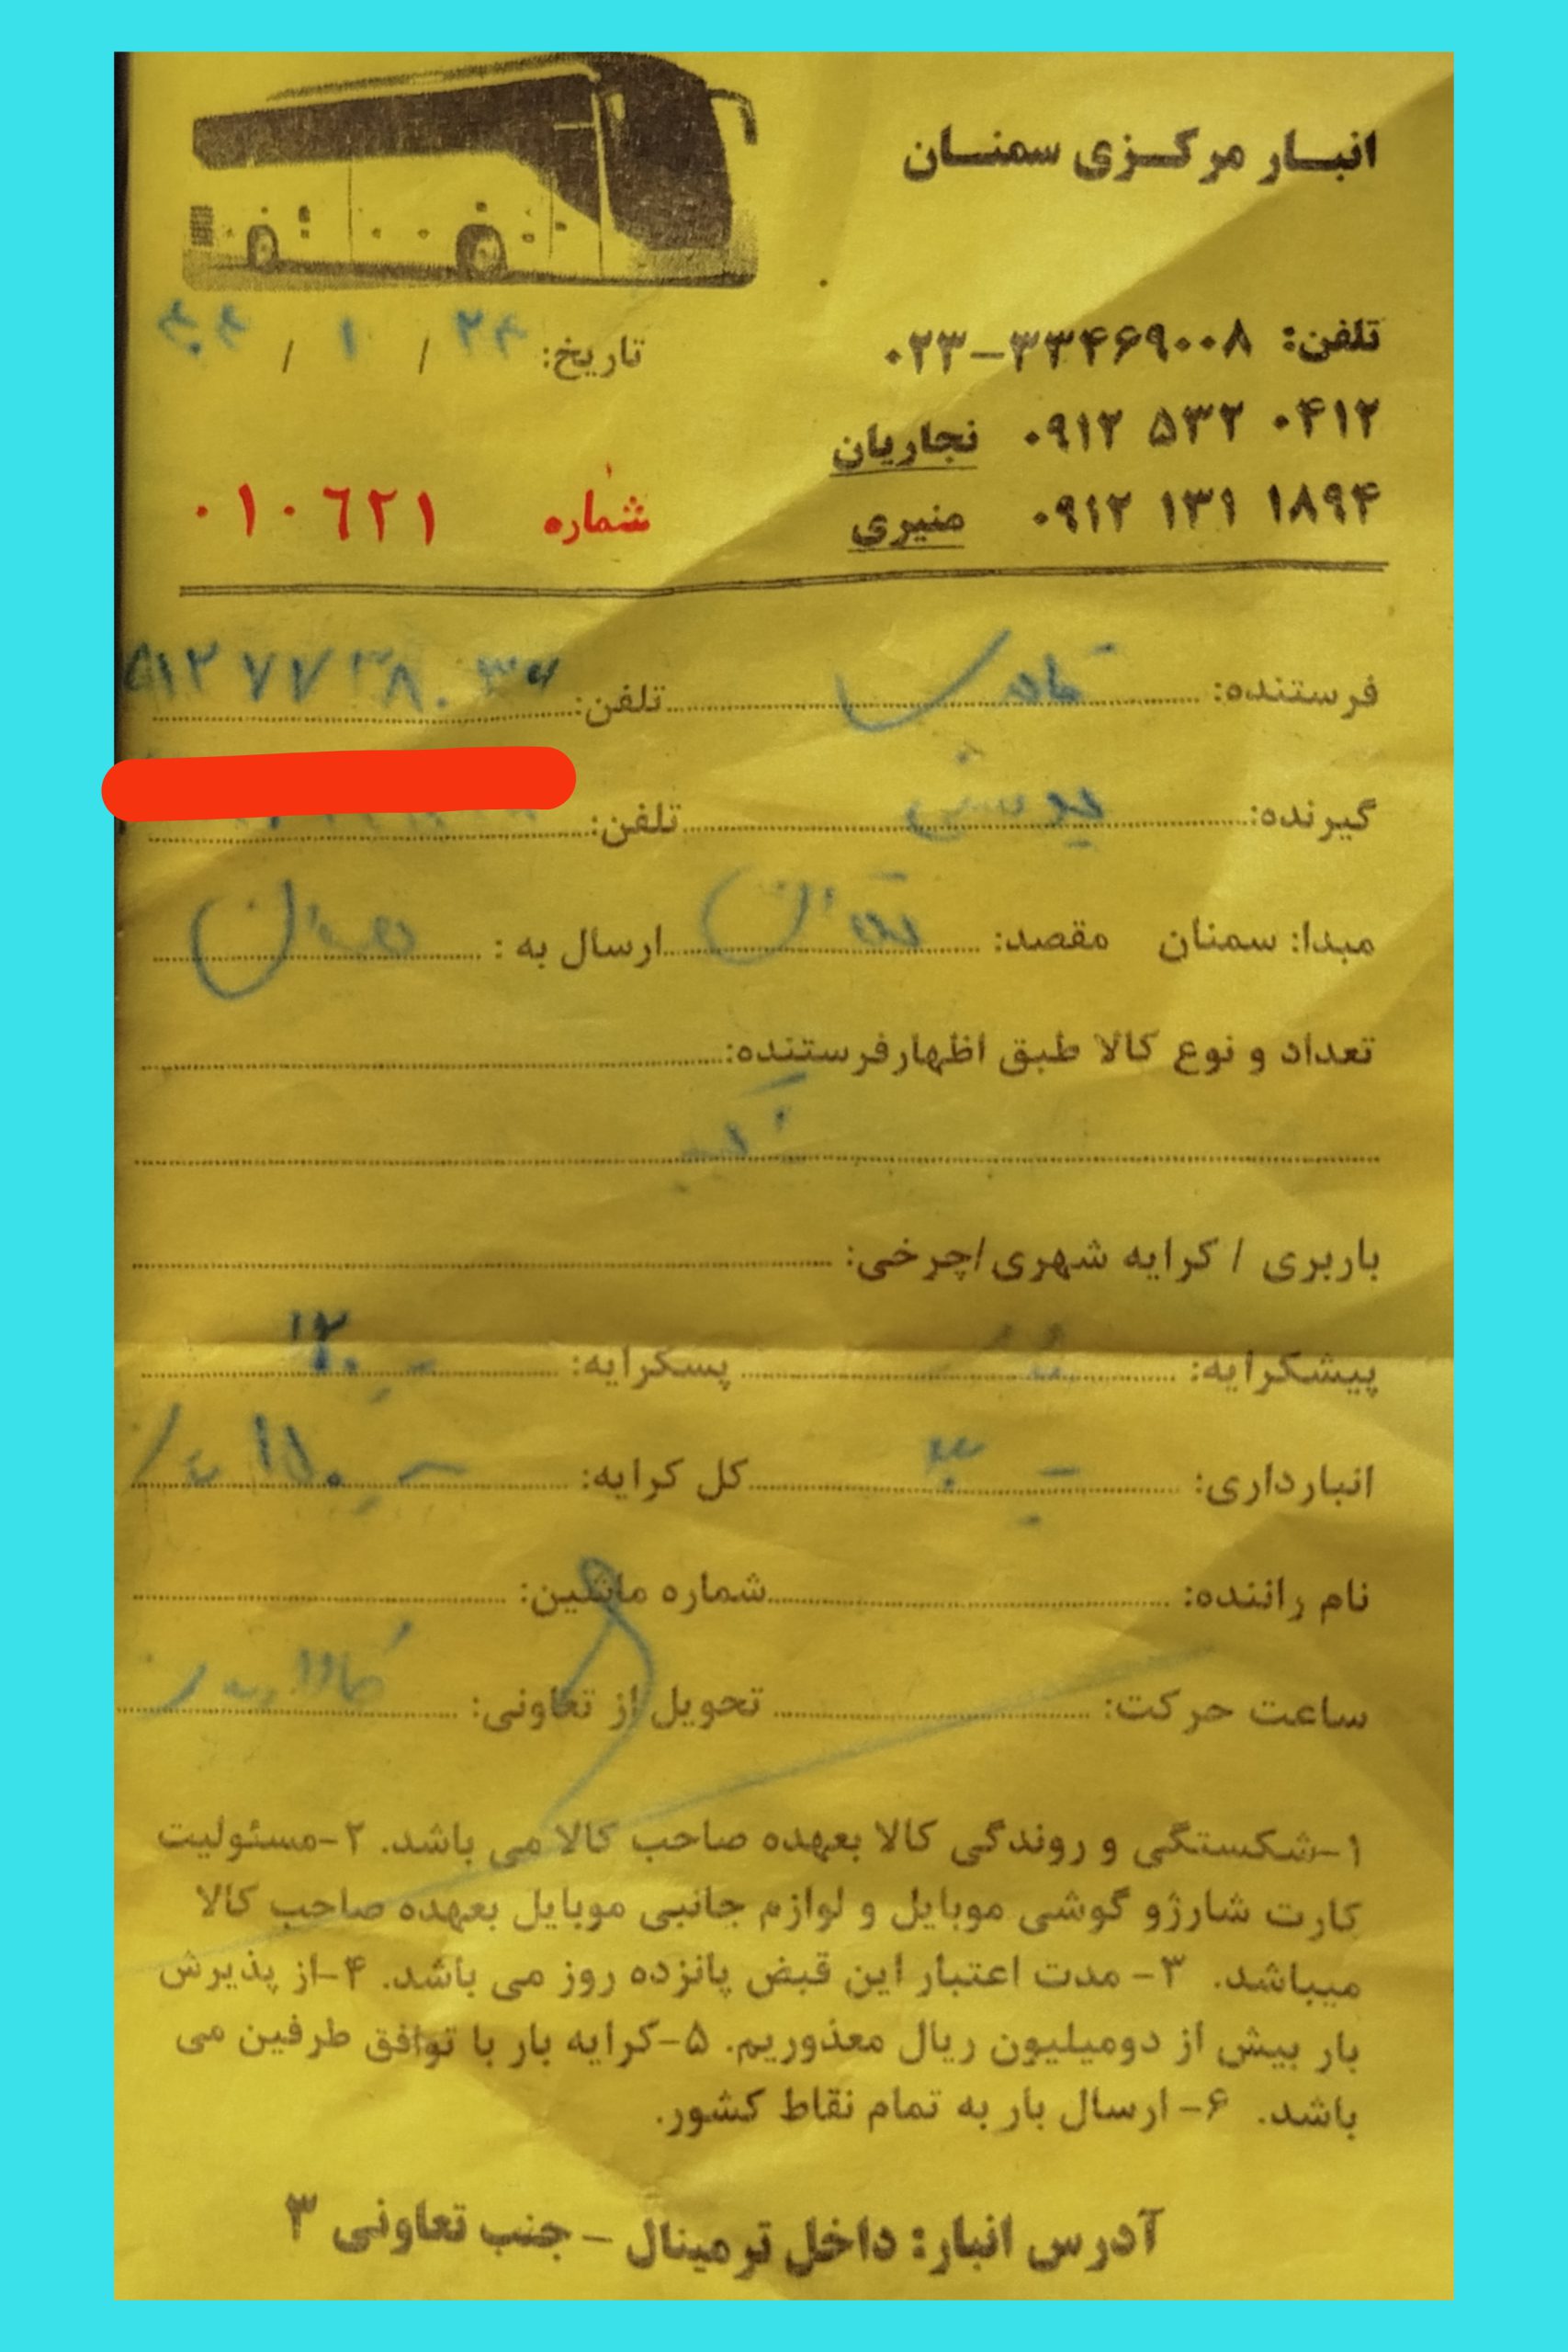 انبار مرکزی سمنان
تلفن: ۰۲۳-۳۳۴۶۹۰۰۸
۰۹۱۲ ۵۳۲ ۰۴۱۲ نجاریان
۰۹۱۲ ۱۳۱ ۱۸۹۴ منیری
تاریخ: / ۱ /
شماره ۰۱۰۶۲۱
فرستنده: تلفن:
گیرنده: تلفن:
مبدا: سمنان مقصد: ارسال به :
تعداد و نوع کالا طبق اظهارفرستنده:
باربری / کرایه شهری/چرخی:
پیشکرایه: پسکرایه: ۱۲۰
انبارداری: ۳۰ کل کرایه: ۱۵۰
نام راننده: شماره ماشین:
ساعت حرکت: تحویل از تعاونی:
۱-شکستگی و روندگی کالا بعهده صاحب کالا می باشد. ۲-مسئولیت
کارت شارژو گوشی موبایل و لوازم جانبی موبایل بعهده صاحب کالا
میباشد. ۳- مدت اعتبار این قبض پانزده روز می باشد. ۴-از پذیرش
بار بیش از دومیلیون ریال معذوریم. ۵-کرایه بار با توافق طرفین می
باشد. ۶- ارسال بار به تمام نقاط کشور.
آدرس انبار: داخل ترمینال - جنب تعاونی ۳